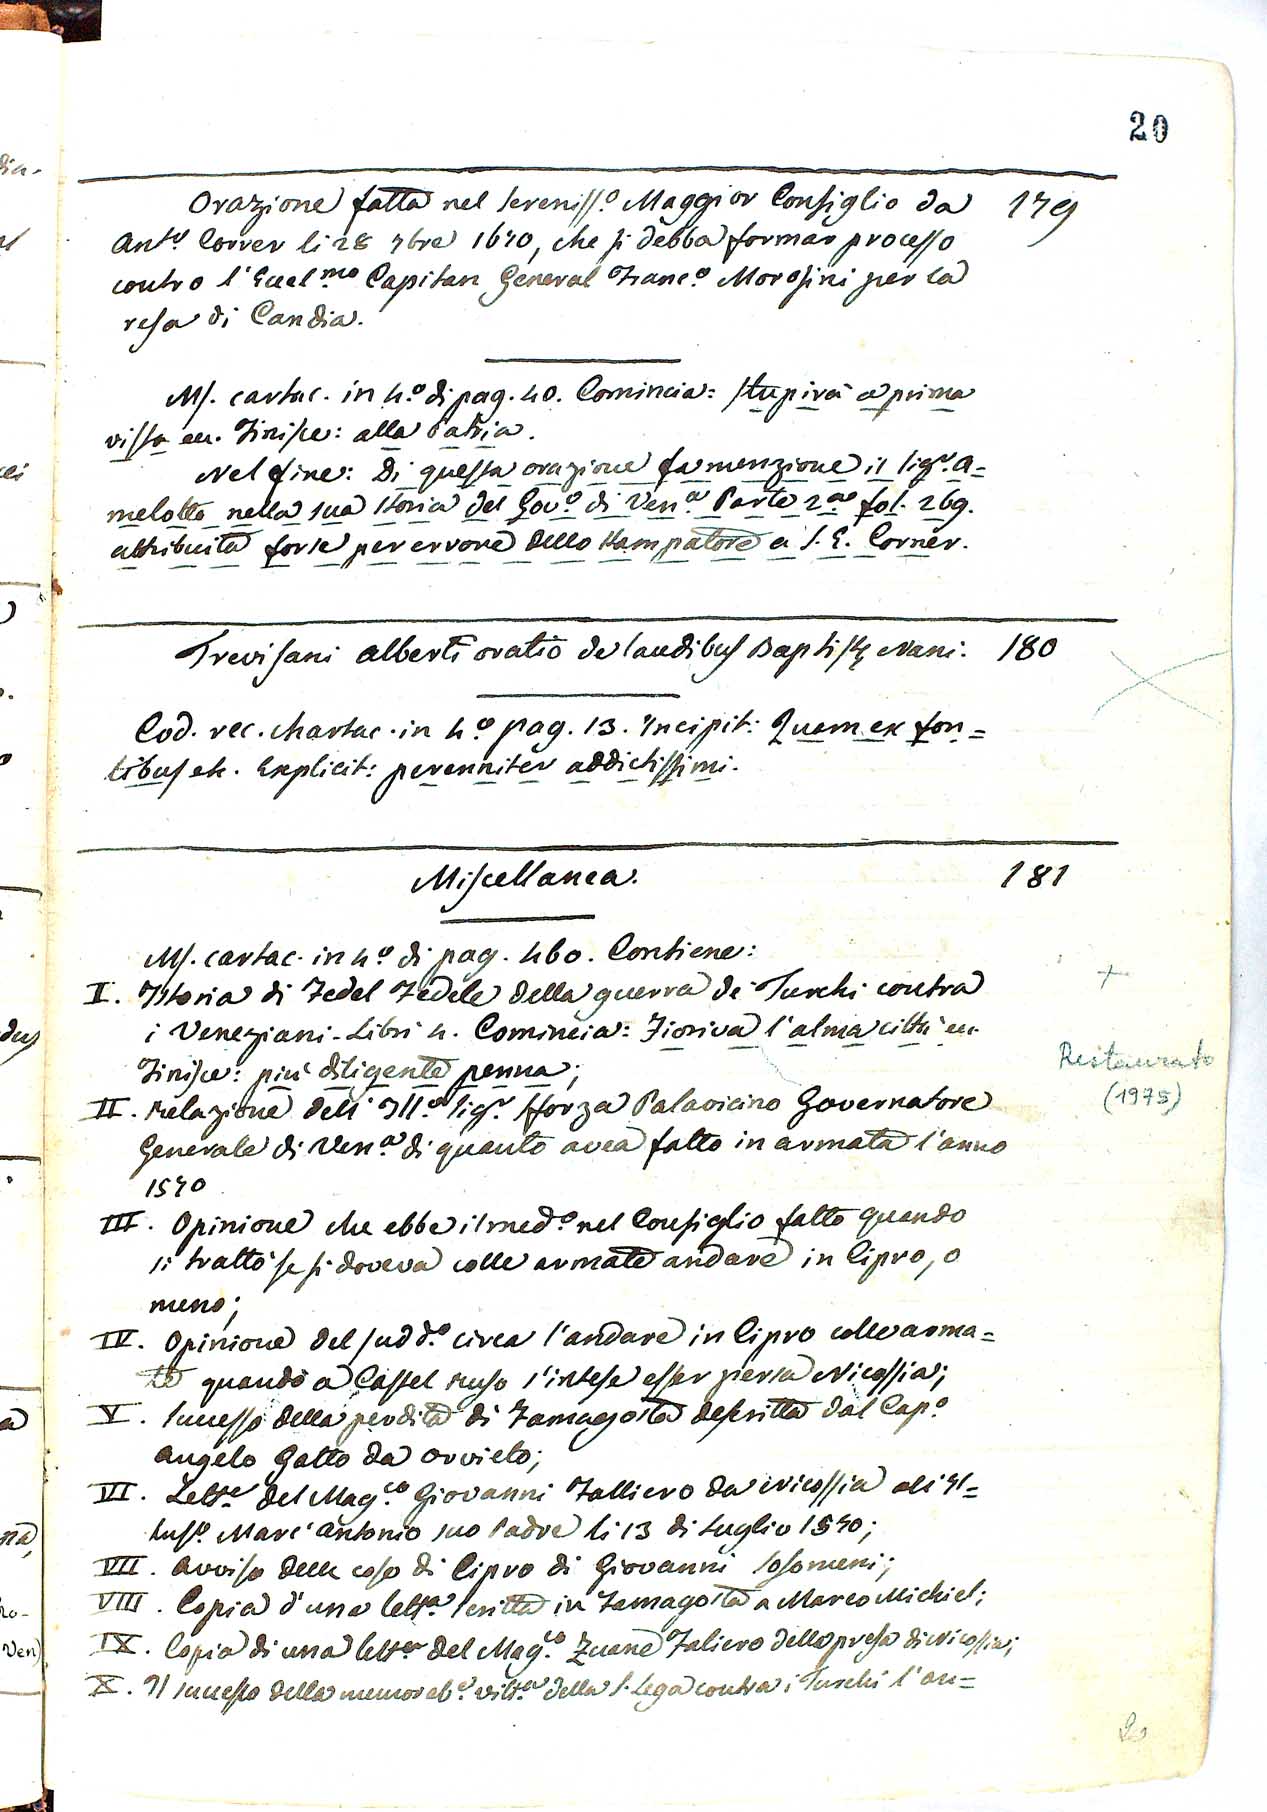 20
Orazione fatta nel Sereniss.º Maggior Consiglio da 179
Ant.º Correr li 28 7bre 1670, che si debba formar processo
contro l'Eccel.mo Capitan General Franc.º Morosini per la
resa di Candia.
Ms. cartac. in 4.º di pag. 40. Comincia: Stupirà a prima
vista ec. Finisce: alla Patria.
Nel fine: Di questa orazione fa menzione il Sigr. A=
melotto nella sua Storia del Gov.º di Ven.a Parte 2.a fol. 269.
attribuita forse per errore dello Stampatore a S. E. Corner.
Trevisani Alberti oratio de laudibus Baptistę Nani. 180
Cod. rec. chartac. in 4.º pag. 13. Incipit: Quem ex fon=
tibus etc. Explicit: perenniter addictissimi.
Miscellanea. 181
Ms. cartac. in 4.º di pag. 460. Contiene:
I. Istoria di Fedel Fedele della guerra de' Turchi contra
i Veneziani. Libri 4. Comincia: Fioriva l'alma città ec.
Finisce: più diligente penna;
Restaurato
(1975)
II. Relazione dell' Ill.º Sigr. Sforza Palavicino Governatore
Generale di Ven.a di quanto avea fatto in armata l'anno
1570
III. Opinione che ebbe il med.º nel Consiglio fatto quando
si trattò se si doveva colle armate andare in Cipro, o
meno;
IV. Opinione del sudd.º circa l'andare in Cipro colle arma=
te quando a Castel Ruzo s'intese esser persa Nicossia;
V. Successo della perdita di Famagosta descritta dal Cap.º
Angelo Gatto da Orvieto;
VI. Lett.e del Mag.co Giovanni Falliero da Nicossia all' Il=
lus.º Marc'Antonio suo Padre li 13 di Luglio 1570;
VII. Avviso delle cose di Cipro di Giovanni Sosomeni;
VIII. Copia d'una lett.a scritta in Famagosta a Marco Michiel;
IX. Copia di una lett.a del Mag.co Zuane Faliero della presa di Nicossia;
X. Il successo della memorab.e vitt.a della S. Lega contra i Turchi l'an=
20